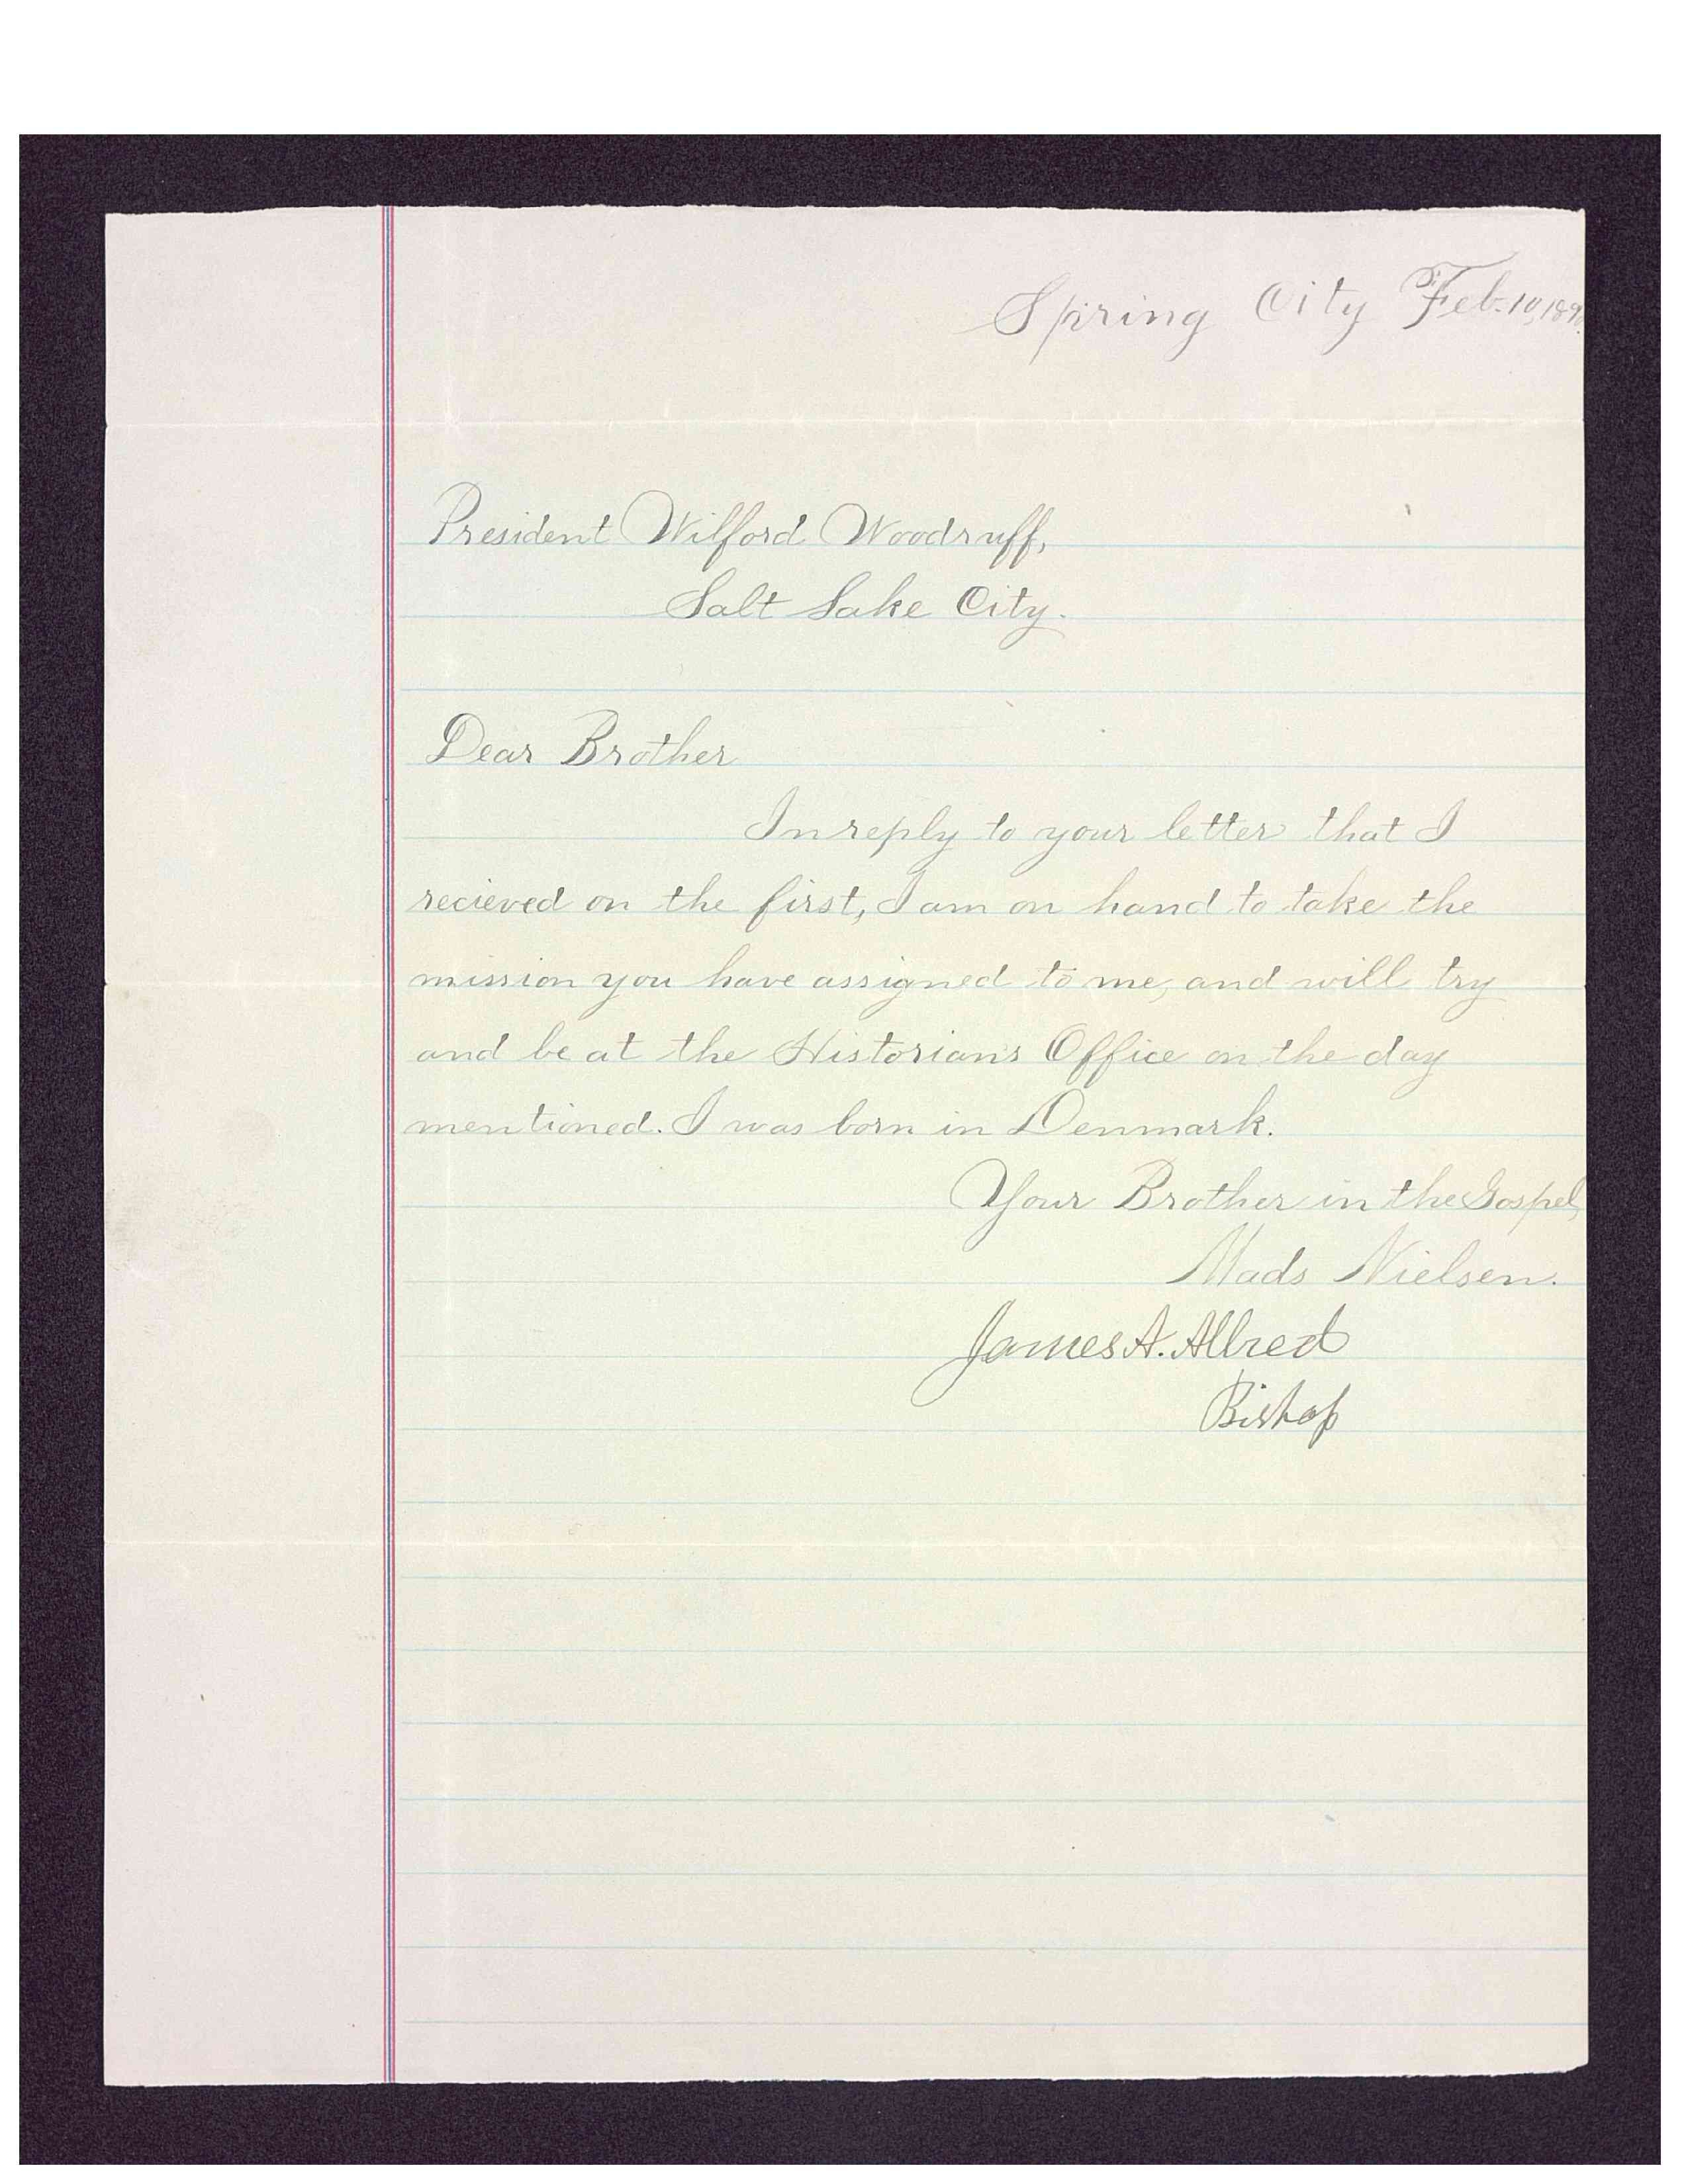 Spring City Feb. 10, 1890.
President Wilford Woodruff,
Salt Lake City.
Dear Brother
In reply to your letter that I
recieved on the first, I am on hand to take the
mission you have assigned to me, and will try
and be at the Historians Office on the day
mentioned. I was born in Denmark.
Your Brother in the Gospel,
Mads Nielsen.
James A. Allred
Bishop